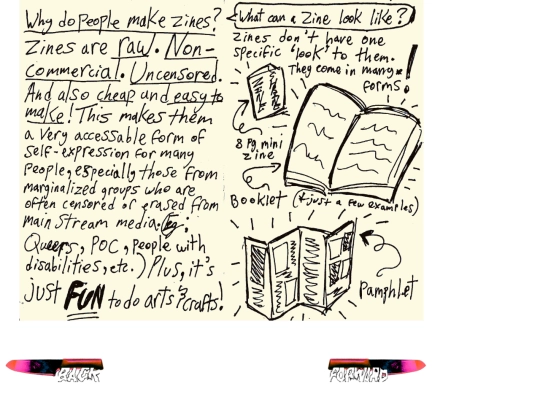 Why do people make zines?
Zines are raw. Non-
Commercial. Uncensored.
And also cheap and easy to
make! This makes them
a very accessable form of
self-expression for many
people, especially those from
marginalized groups who are
often censored or erased from
main stream media. (eg:
Queers, POC, people with
disabilities, etc.) Plus, it's
just FUN to do arts & crafts!
What can a zine look like?
Zines don't have one
specific 'look' to them.
They come in many*
forms!
8 pg mini
zine
Booklet (*just a few examples)
Pamphlet
BACK
FORWARD